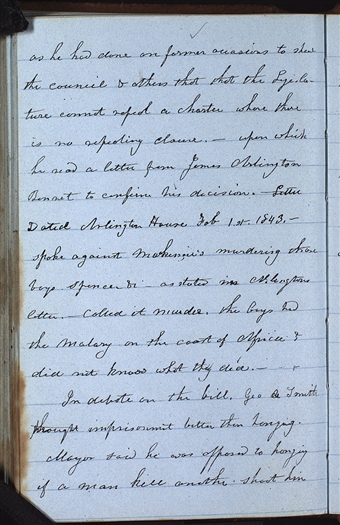 as he had done on former occasions to shew
the council & others that that the Legisla-
ture cannot repeal a charter where there
is no repealing clause. — upon which
he read a letter from James Arlington
Bennet to confirm his decision. — Letter
Dated Arlington House Feb 1st 1843. —
spoke against Mackenzie's murdering those
boys Spencer &c — as stated in Arlingtons
letter. — Called it murder. the boys had
the Malary on the coast of Africa &
did not know what they did. —
In debate on the bill. Geo A Smith
thought imprisonment better than hanging.
Mayor said he was opposed to hanging
if a man kill another shoot him